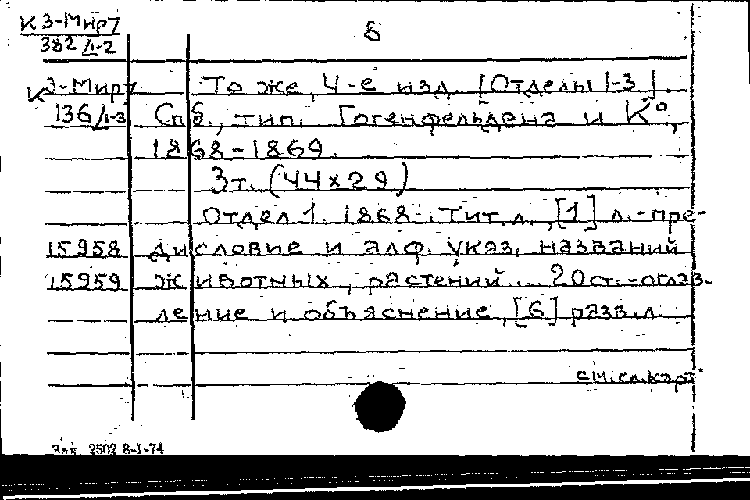 К 3-Мир7
382/1-2
8
К 3-Мир7 То же, 4-е изд. [Отделы 1-3].
136/1-3 Спб., тип. Гогенфельдена и К°,
1868-1869.
3т. (44х29)
Отдел 1. 1868. Тит. л., [1] л.-пре-
15958 дисловие и алф. указ. названий
15959 животных, растений... 20 ст.-оглав-
ление и объяснение, [6] разв. л.
см. сл. карт.
Зак. 2502 8-I-74